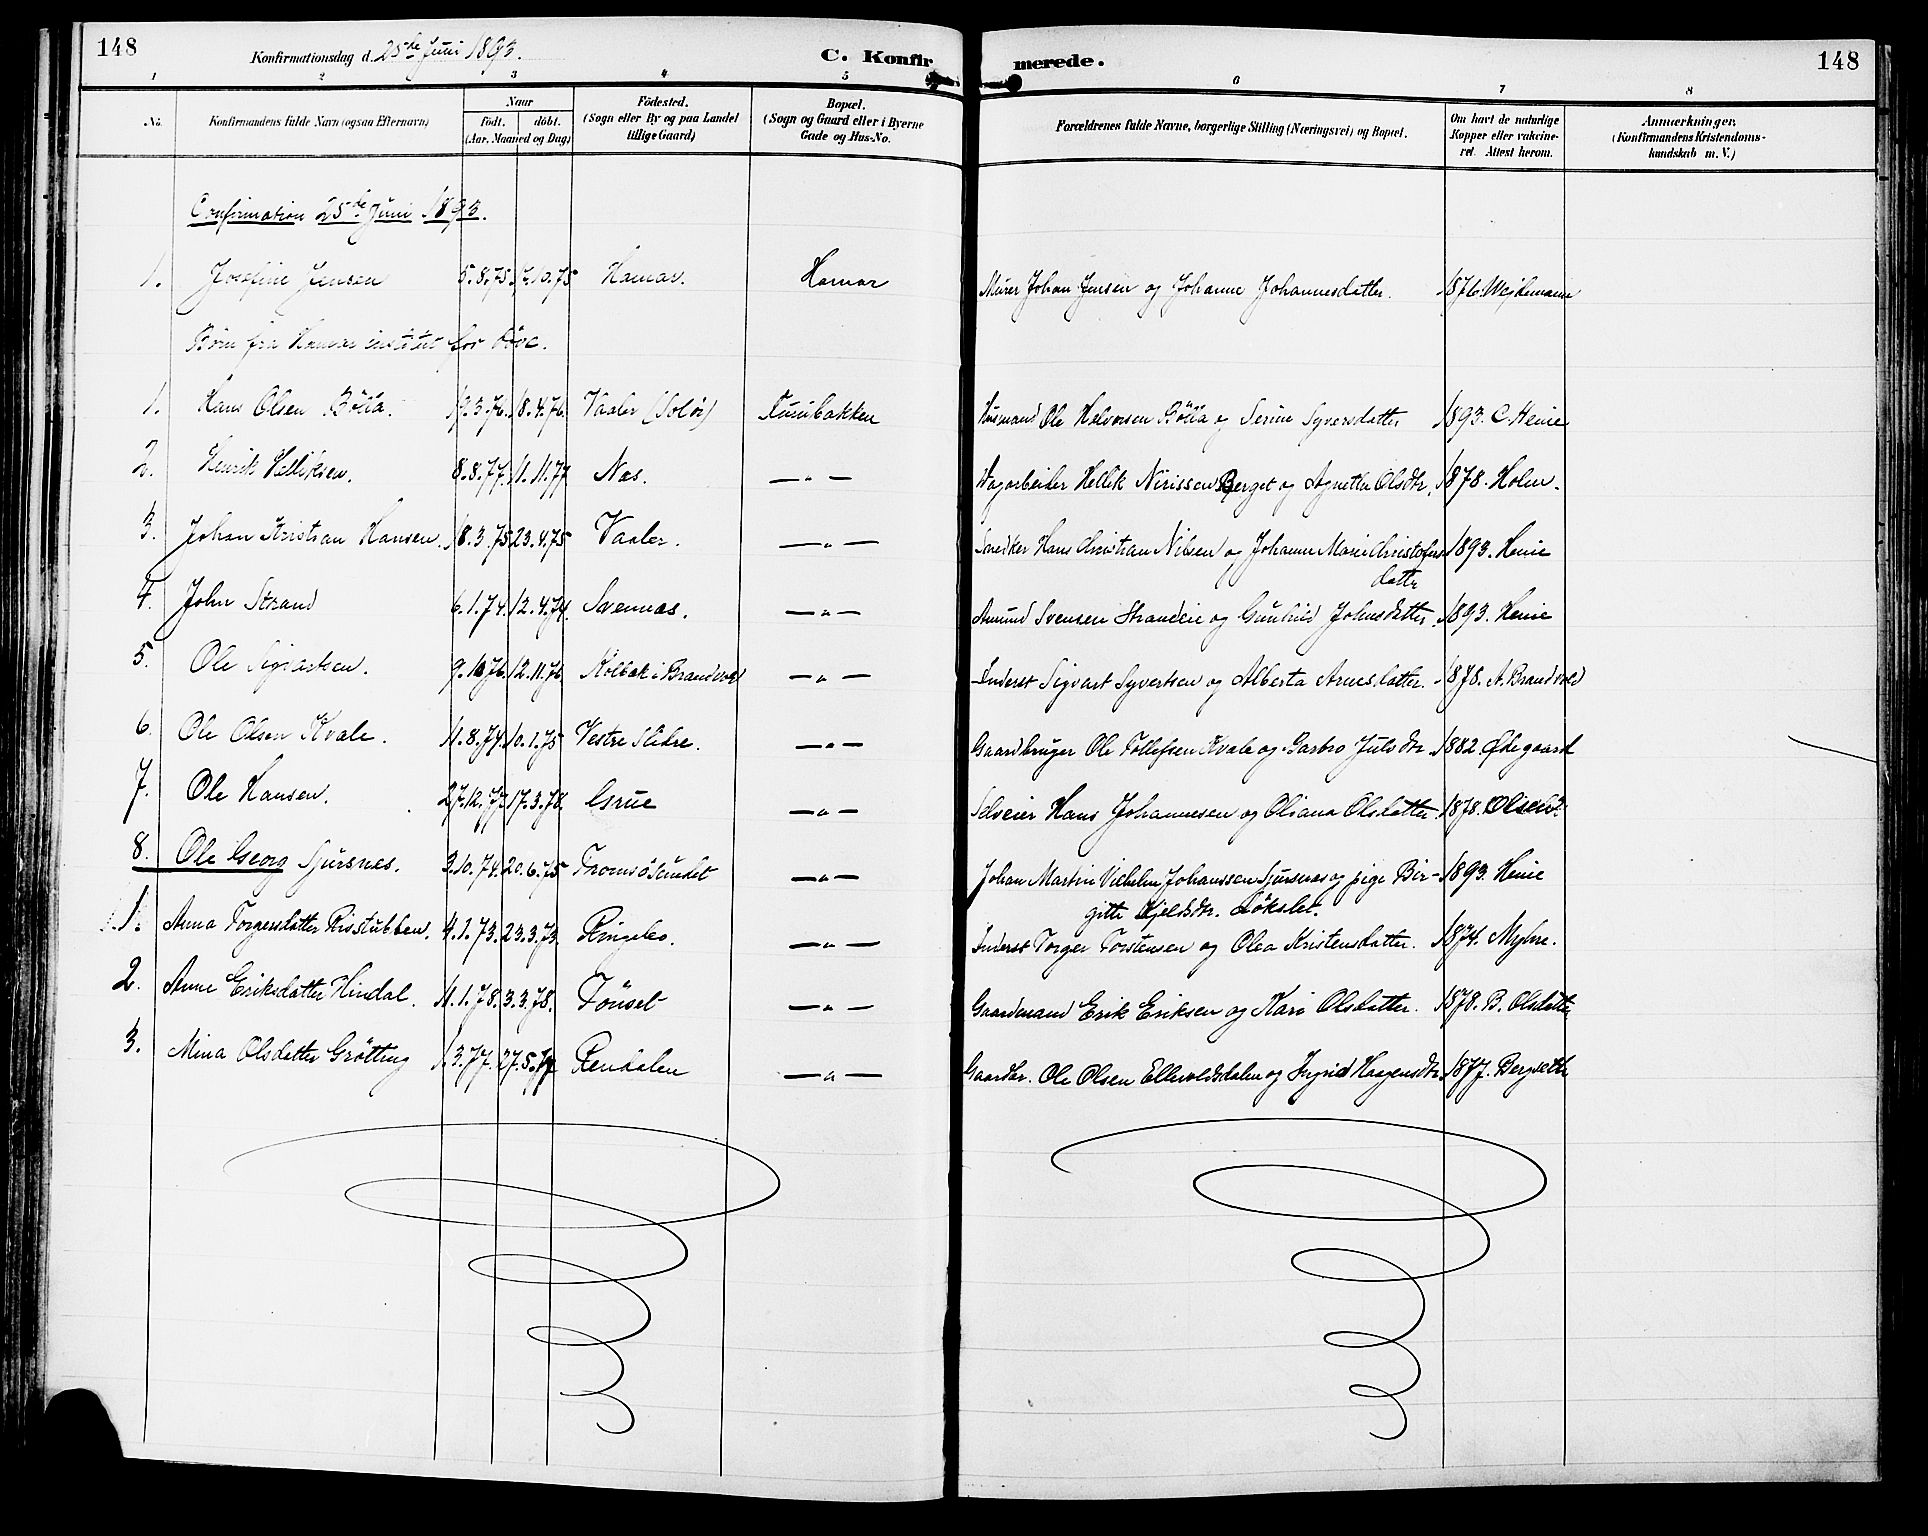 148
Konfirmationsdag d. 25de Juni 1893.
C. Konfirmerede.
148
1 2 3 4 5 6 7 8
No.
Konfirmandens fulde Navn (ogsaa Efternavn)
Naar
födt. döbt.
(Aar, Maaned og Dag)
Födested.
(Sogn eller By og paa Landet
tillige Gaard)
Bopæl.
(Sogn og Gaard eller i Byerne
Gade og Hus-No.
Forældrenes fulde Navne, borgerlige Stilling (Næringsvei) og Bopæl.
Om havt de naturlige
Kopper eller vakcine-
ret. Attest herom.
Anmærkninger.
(Konfirmandens Kristendoms-
kundskab m. V.)
Confirmation 25de Juni 1893.
1. Josefine Jensen 5.8.75. 17.10.75 Hamar. Hamar Murer Johan Jensen og Johanne Johannesdatter. 1876. Mejdemann
Børn fra Hamar institut for döve.
1. Hans Olsen Bölla. 19.3.76. 18.4.76. Vaaler (Solör) Furubakken Husmand Ole Halvorsen Bölla og Serine Syversdatter 1893. C. Henie
2. Henrik Helliksen. 8.8.77. 11.11.77 Næs. —„— Dagarbeider Hellik Nirissen Berget og Agnethe Olsdtr. 1878. Holm.
3. Johan Kristian Hansen. 18.3.75. 23.4.75 Vaaler. —„— Snedker Hans Christian Nilsen og Johanne Marie Christofers
datter 1893. Henie
4. John Strand 6.1.74. 12.4.74. Svennæs. —„— Amund Svensen Strandeie og Gunhild Johnsdatter. 1893. Henie
5. Ole Sigvartsen. 9.10.76. 12.11.76 Kolbæk i Brandval —„— Inderst Sigvart Syvertsen og Alberta Arnesdatter. 1878. A. Brandvold
6. Ole Olsen Kvale. 11.8.74. 10.1.75 Vestre Slidre. —„— Gaardbruger Ole Tollefsen Kvale og Garbro Julsdtr. 1882. Ødegaard
7. Ole Hansen. 27.12.77. 17.3.78. Grue —„— Selveier Hans Johannesen og Oliana Olsdatter. 1878. Olsen
8. Ole Georg Sjursnes. 3.10.74. 20.6.75 Tromsösundet —„— Johan Martin Vilhelm Johanssen Sjursnæs og pige Bir-
gitte Kjeldsdtr. Lökslet. 1893. Henie
1. Anna Torgersdatter Risstubben. 4.1.73. 23.3.73. Ringebo. —„— Inderst Torger Torstensen og Olea Kristensdatter. 1874. Myhre.
2. Anne Eriksdatter Hindal. 11.1.78. 3.3.78. Tönset —„— Gaardmand Erik Eriksen og Kari Olsdatter. 1878. B. Olsdatter
3. Mina Olsdatter Grötting 1.3.77. 27.5.77 Rendalen —„— Gaardbr. Ole Olsen Ellevoldsdalen og Ingrid Haagensdtr. 1877. Bergseth